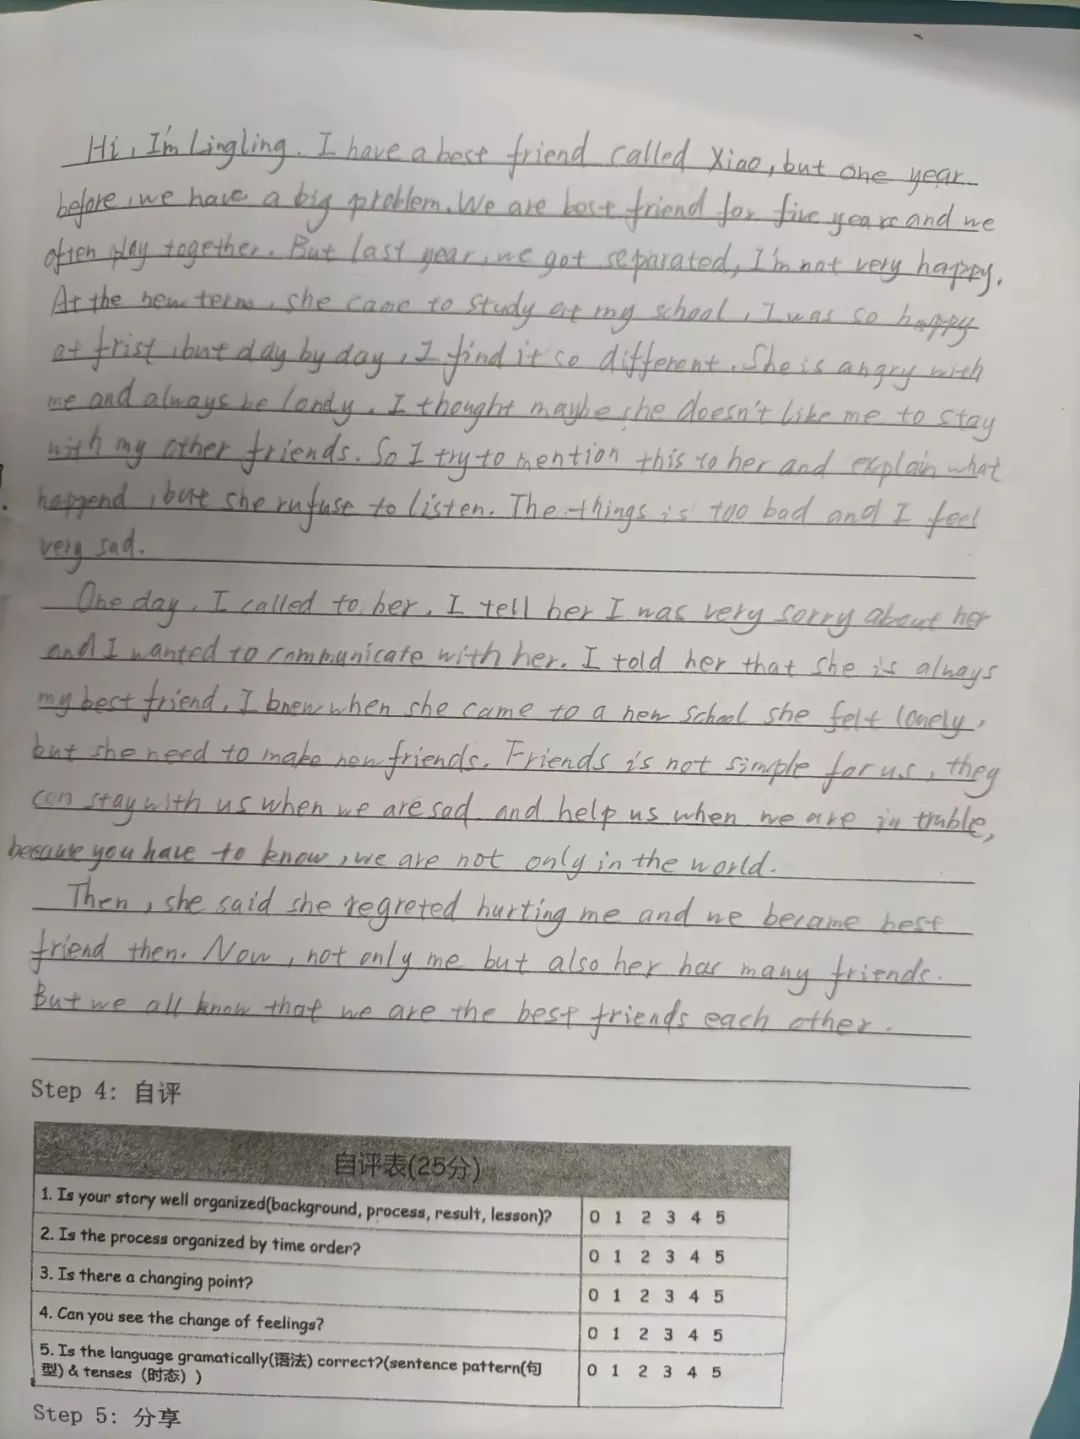 Hi, I'm Lingling. I have a best friend called Xiao, but one year
before, we have a big problem. We are best friend for five years and we
often play together. But last year, we got separated, I'm not very happy.
At the new term, she came to study at my school, I was so happy
at frist, but day by day, I find it so different. She is angry with
me and always be londy. I thought maybe she doesn't like me to stay
with my other friends. So I try to mention this to her and explain what
happend, but she rufuse to listen. The things is too bad and I feel
very sad.
One day, I called to her. I tell her I was very sorry about her
and I wanted to communicate with her. I told her that she is always
my best friend. I knew when she came to a new school she felt lonely,
but she need to make new friends. Friends is not simple for us, they
can stay with us when we are sad and help us when we are in truble,
because you have to know, we are not only in the world.
Then, she said she regreted hurting me and we became best
friend then. Now, not only me but also her has many friends.
But we all know that we are the best friends each other.
Step 4: 自评
自评表(25分)
1. Is your story well organized(background, process, result, lesson)? 0 1 2 3 4 5
2. Is the process organized by time order? 0 1 2 3 4 5
3. Is there a changing point? 0 1 2 3 4 5
4. Can you see the change of feelings? 0 1 2 3 4 5
5. Is the language gramatically(语法) correct?(sentence pattern(句 0 1 2 3 4 5
型) & tenses (时态) )
Step 5: 分享